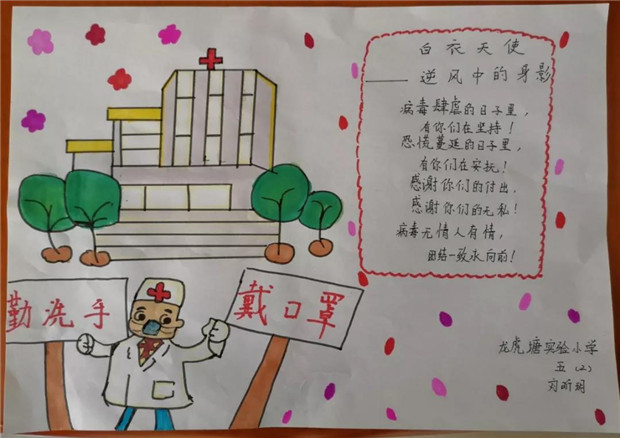 白衣天使
——逆风中的身影
病毒肆虐的日子里,
有你们在坚持!
恐慌蔓延的日子里,
有你们在安抚!
感谢你们的付出,
感谢你们的无私!
病毒无情人有情,
团结一致永向前!
勤洗手
戴口罩
龙虎塘实验小学
五(2)